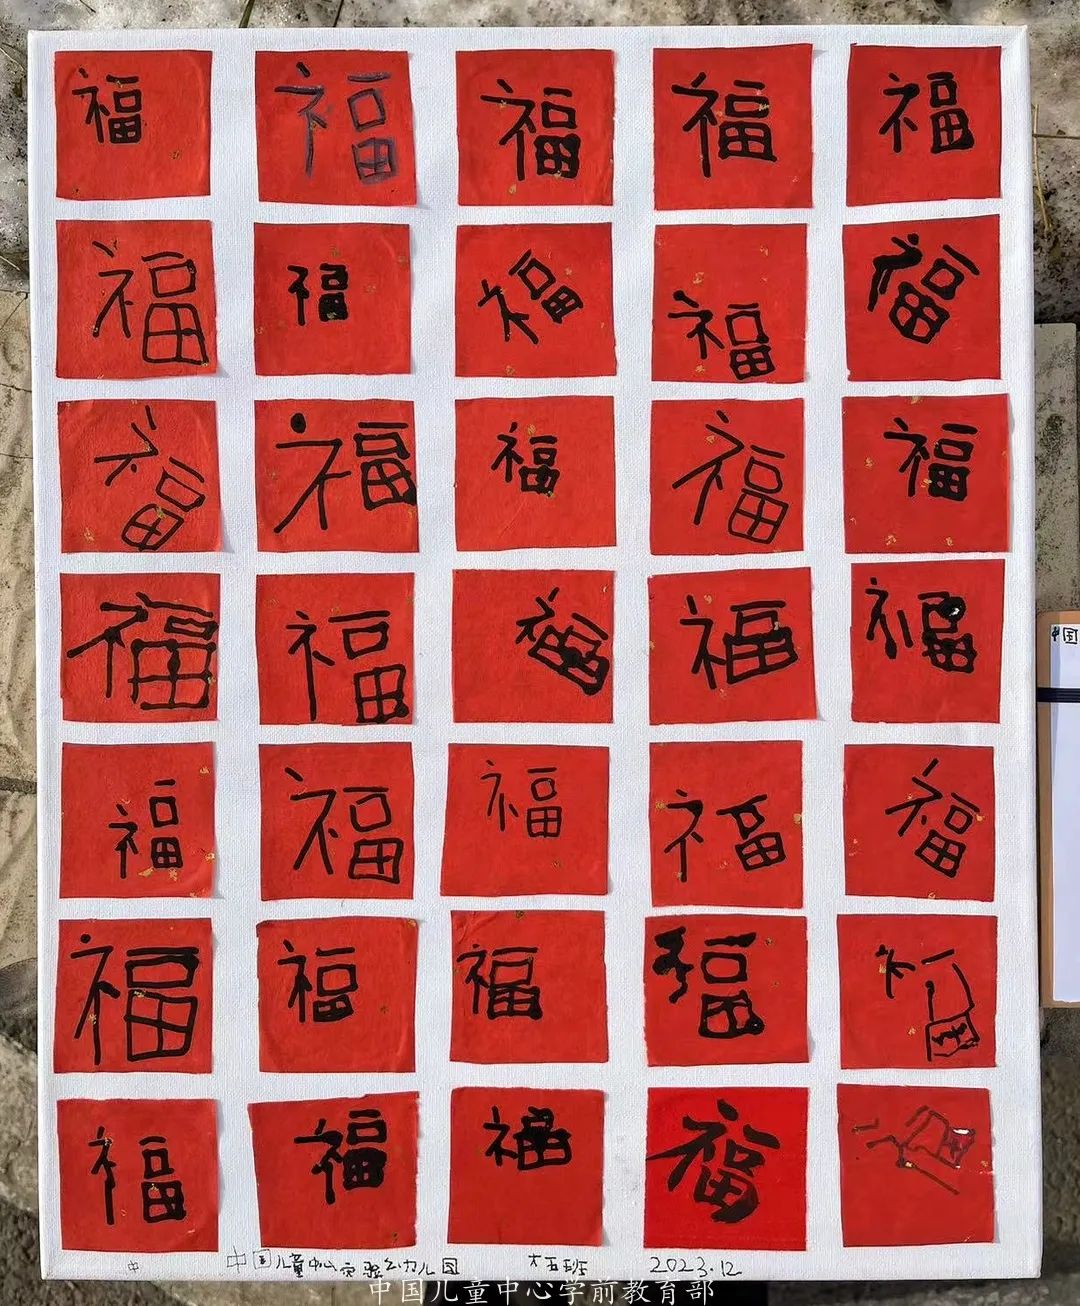 福 福 福 福 福
福 福 福 福 福
福 福 福 福 福
福 福 福 福 福
中国
福 福 福 福 福
福 福 福 福 福
福 福 福 福
中 中国儿童中心实验幼儿园 大五班 2023.12
中国儿童中心学前教育部